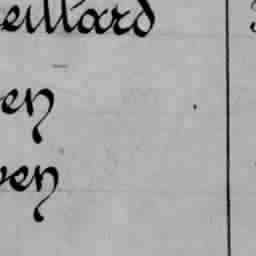 eillard
en
en